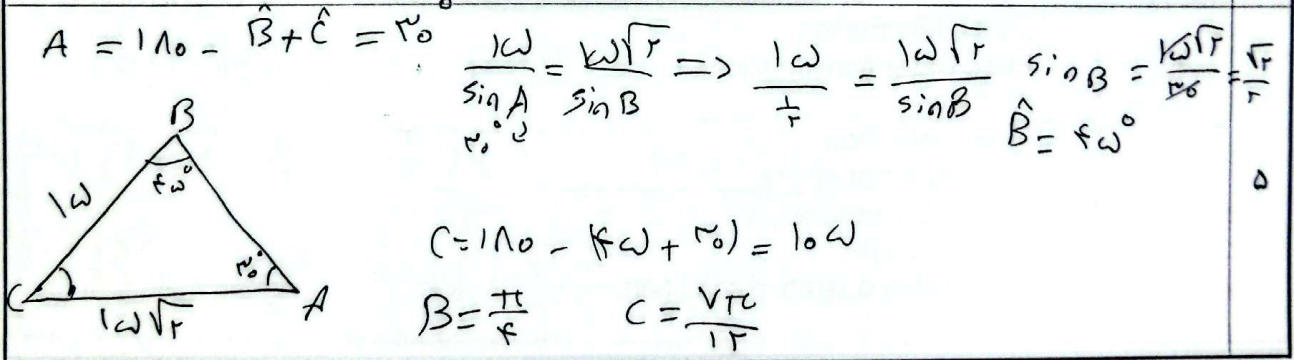 A = ۱۸۰ - B̂ + Ĉ = ۳۰°
۱۵/sin A = ۱۵√۲/sin B => ۱۵/(۱/۲) = ۱۵√۲/sin B   sin B = ۱۵√۲/۳۰ = √۲/۲
۳۰°   B̂ = ۴۵°
B
۴۵°
۱۵
۵
C = ۱۸۰ - (۴۵ + ۳۰) = ۱۰۵
۳۰°
C   A
۱۵√۲
B = π/۴   C = ۷π/۱۲